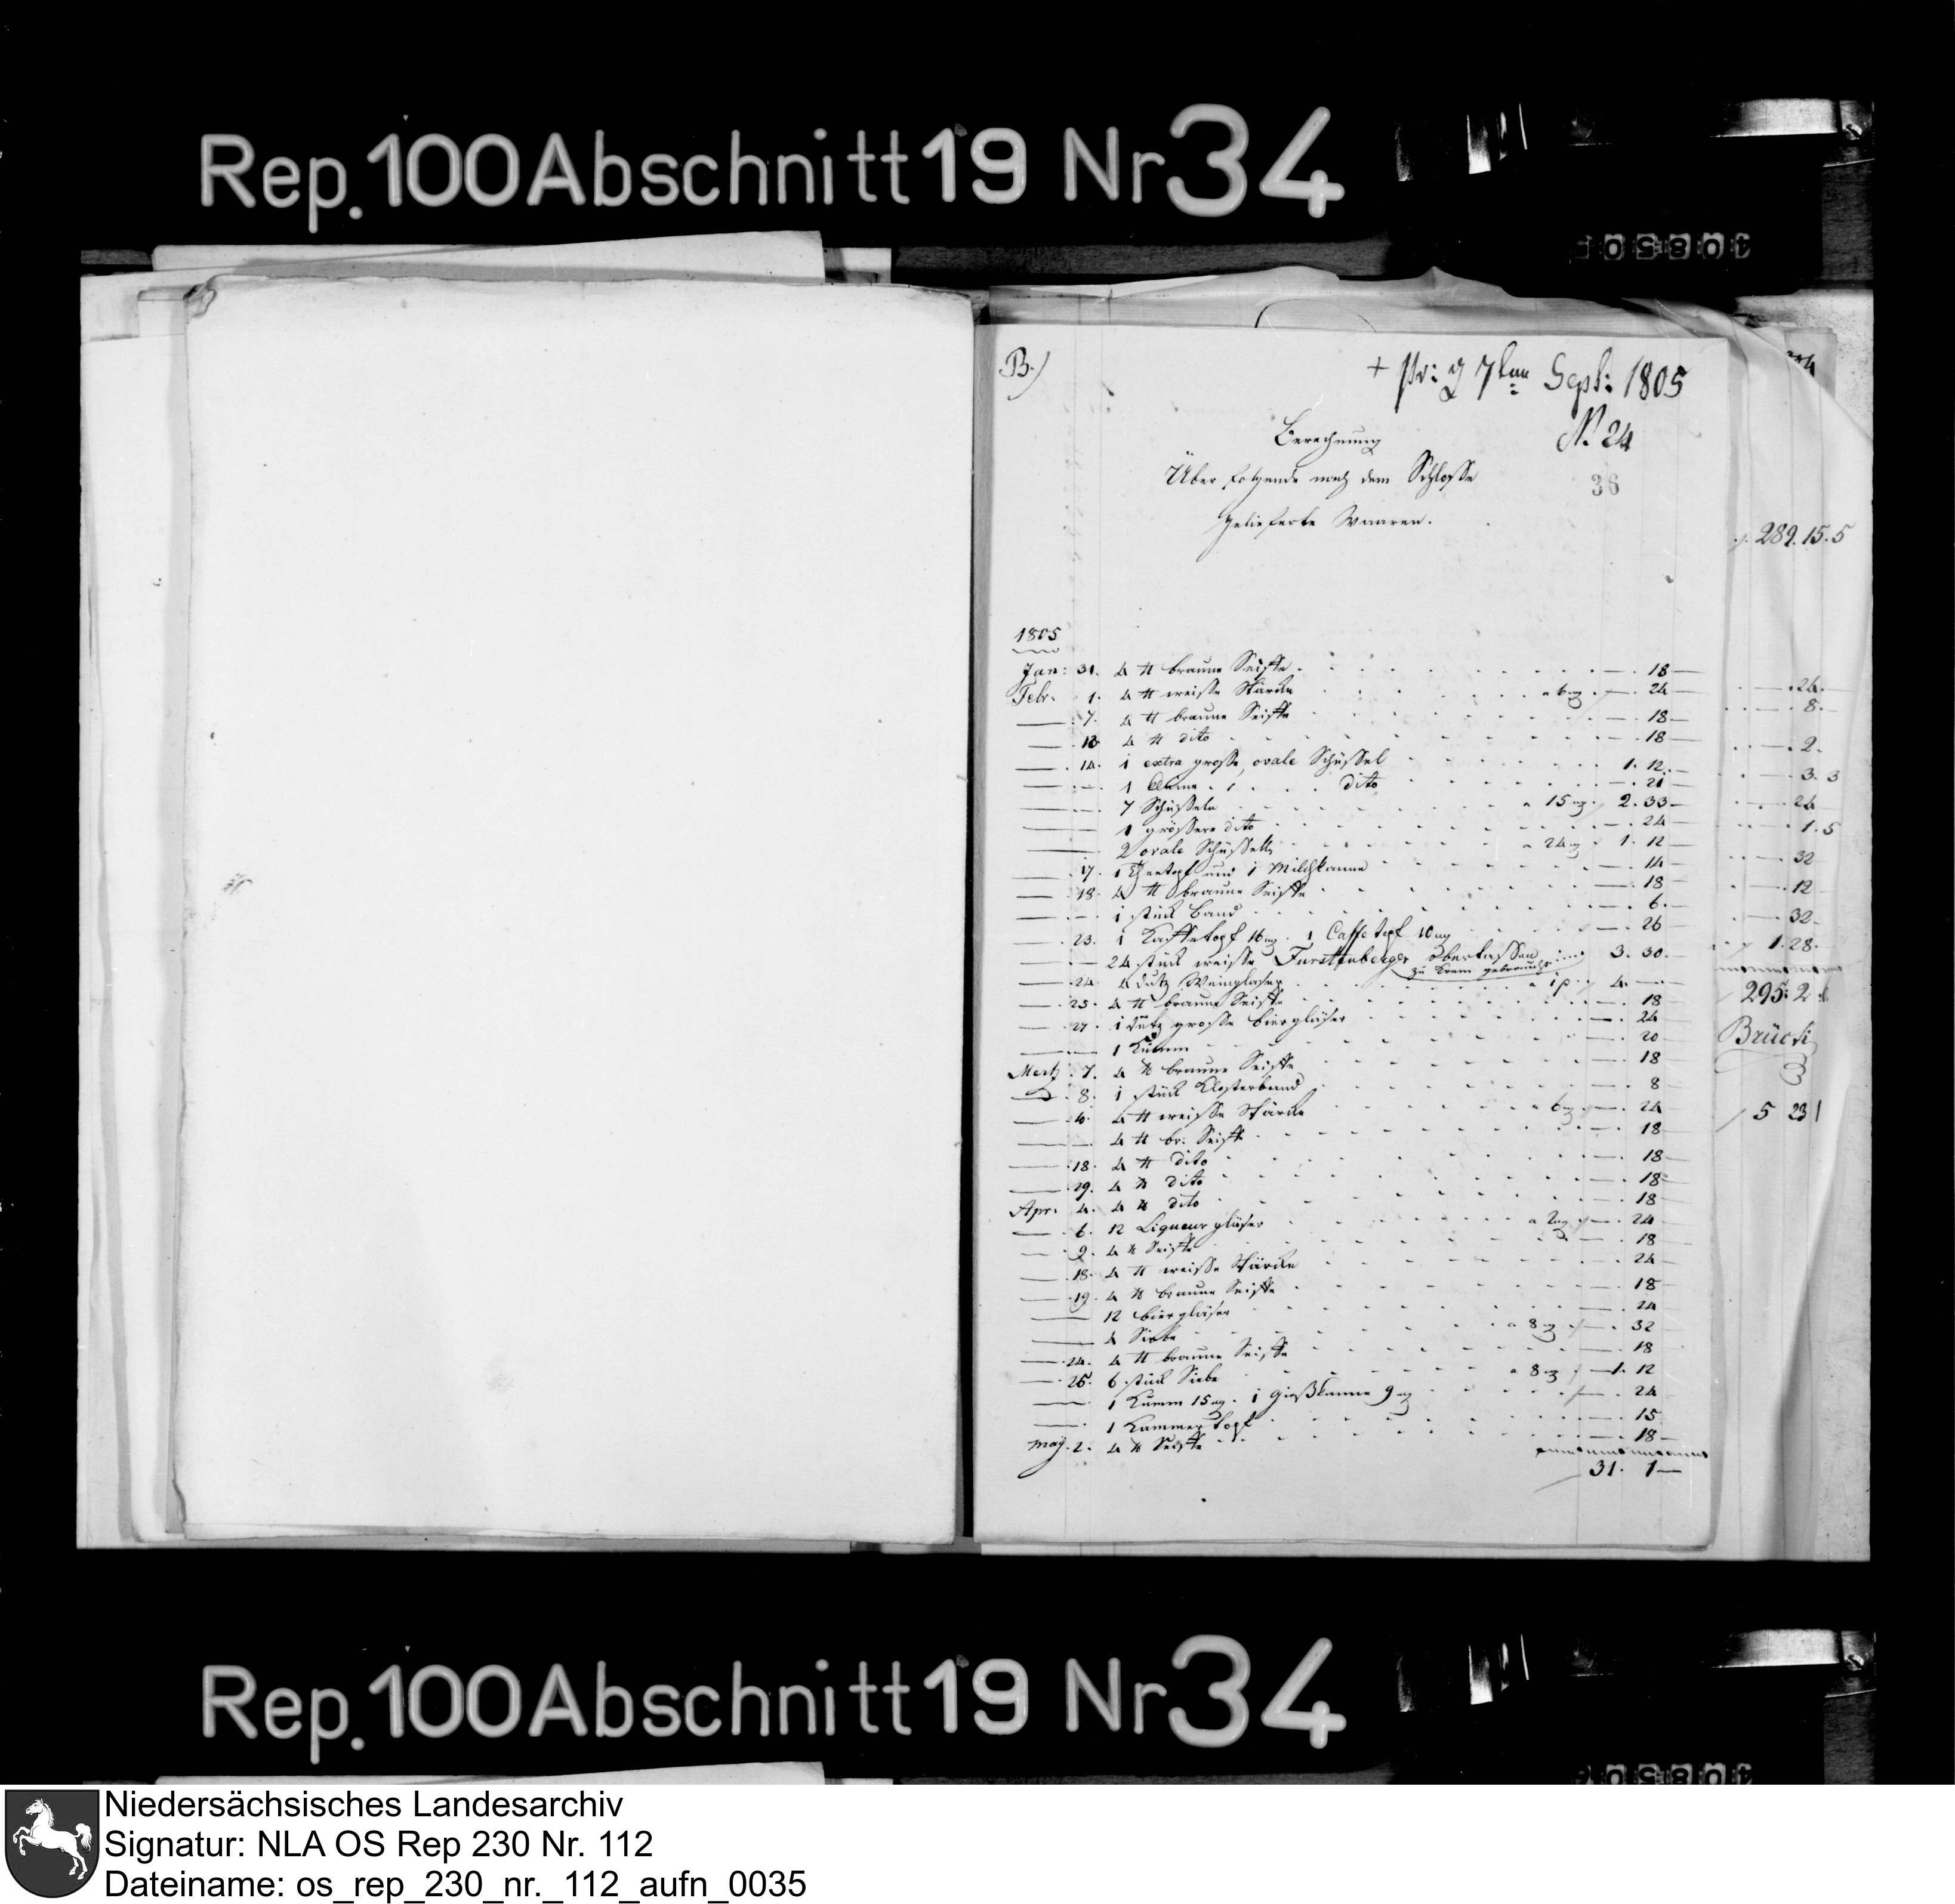 Rep. 100 Abschnitt 19 Nr 34
B.)
+ Pr: d 7ten Sept: 1805
N. 24
Berechnung
Über folgende nach dem Schlosse
36
gelieferte Waaren.
1805
Jan: 31. 4 ℔ braune Seiffe . . . — . 18 —
Febr. 1. 4 ℔ weisse Stärcke . . . a 6 mg . — . 24
— . 7. 4 ℔ braune Seiffe . . . — . 18 —
— . 13. 4 ℔ dito . . . — . 18
— . 14. 1 extra grosse, ovale Schüssel . . . 1. 12. —
— . — . 1 kleine . 1 . . . dito . . . — . 21
— . — . 7 Schüsseln . . . a 15 mg 2. 33 —
— 1 grössere dito . . . — . 24
— 2 ovale Schüsseln . . . a 24 mg 1. 12
— . 17. 1 Theetopf und 1 Milchkanne . . . — . 14
— . 18. 4 ℔ braune Seiffe . . . — . 18
— . — . 1 stück Band . . . — . 6. —
— . 23. 1 Kaffetopf 16 mg . 1 Caffetopf 10 mg . . . — . 26
— . — 24 stück weisse Furstenberger obertassen . . . 3. 30. —
zu Krem gebraucht
— . 24. 4 dutz Weingläser . . . a 1 p 4. —
— . 25. 4 ℔ braune Seiffe . . . — . 18
— . 27. 1 dutz grosse biergläser . . . — . 24
— . — 1 Kumm . . . — . 20
Mertz . 7. 4 ℔ braune Seiffe . . . — . 18
— . 8. 1 stück Klosterband . . . — . 8
— 4 ℔ weisse Stärcke . . . a 6 mg — . 24
— 4 ℔ br: Seiffe . . . — . 18
— . 18. 4 ℔ dito . . . — . 18
— . 29. 4 ℔ dito . . . — . 18
Apr. 4. 4 ℔ dito . . . — . 18
— . 6. 12 Liqueur gläser . . . a 2 mg — . 24
— 9. 4 ℔ Seiffe . . . — . 18
— . 18. 4 ℔ weisse Stärcke . . . — . 24
— . 19. 4 ℔ braune Seiffe . . . — . 18
— 12 biergläser . . . — . 24
— 4 Siebe . . . a 8 mg — . 32
— . 24. 4 ℔ braune Seiffe . . . — . 18
— . 25. 6 stück Siebe . . . a 8 mg — 1. 12
— 1 Kumm 15 mg . 1 Gießkanne 9 mg . . . — . 24
— 1 Kammertopf . . . — . 15
May. 2. 4 ℔ Seiffe . . . — . 18 —
31. 1 —
289. 15. 5
24.
8.
2.
3. 3
24
1. 5
32
12
32
1. 28.
295. 2
5 23 1
Rep. 100 Abschnitt 19 Nr 34
Niedersächsisches Landesarchiv
Signatur: NLA OS Rep 230 Nr. 112
Dateiname: os_rep_230_nr._112_aufn_0035